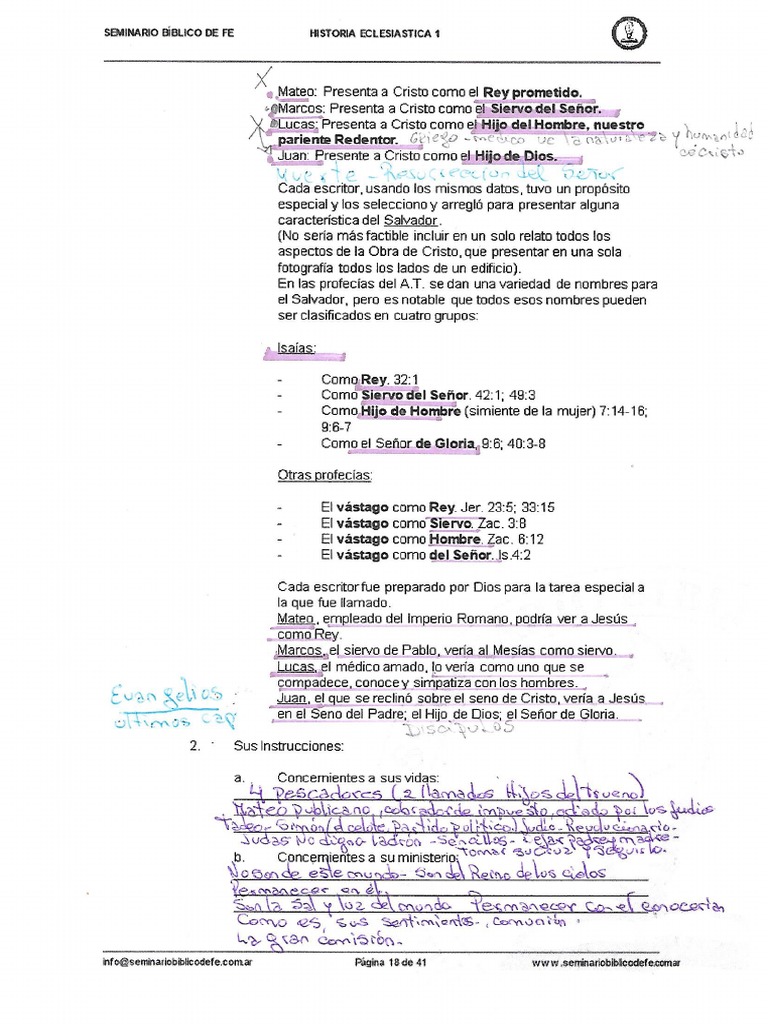 SEMINARIO BÍBLICO DE FE HISTORIA ECLESIASTICA 1
Mateo: Presenta a Cristo como el Rey prometido.
Marcos: Presenta a Cristo como el Siervo del Señor.
Lucas: Presenta a Cristo como el Hijo del Hombre, nuestro
pariente Redentor. Griego - médico ve la naturaleza y humanidad
de Cristo
Juan: Presente a Cristo como el Hijo de Dios.
Muerte - Resurrección del Señor
Cada escritor, usando los mismos datos, tuvo un propósito
especial y los selecciono y arregló para presentar alguna
característica del Salvador.
(No sería más factible incluir en un solo relato todos los
aspectos de la Obra de Cristo, que presentar en una sola
fotografía todos los lados de un edificio).
En las profecías del A.T. se dan una variedad de nombres para
el Salvador, pero es notable que todos esos nombres pueden
ser clasificados en cuatro grupos:
Isaías:
- Como Rey. 32:1
- Como Siervo del Señor. 42:1; 49:3
- Como Hijo de Hombre (simiente de la mujer) 7:14-16;
9:6-7
- Como el Señor de Gloria, 9:6; 40:3-8
Otras profecías:
- El vástago como Rey. Jer. 23:5; 33:15
- El vástago como Siervo. Zac. 3:8
- El vástago como Hombre. Zac. 6:12
- El vástago como del Señor. Is.4:2
Cada escritor fue preparado por Dios para la tarea especial a
la que fue llamado.
Mateo, empleado del Imperio Romano, podría ver a Jesús
como Rey.
Marcos, el siervo de Pablo, vería al Mesías como siervo.
Lucas, el médico amado, lo vería como uno que se
compadece, conoce y simpatiza con los hombres.
Juan, el que se reclinó sobre el seno de Cristo, vería a Jesús
en el Seno del Padre; el Hijo de Dios; el Señor de Gloria.
Evangelios:
ultimos cap
Discipulos
2. Sus Instrucciones:
a. Concernientes a sus vidas:
4 Pescadores (2 llamados Hijos del trueno)
Mateo Publicano, cobrador de impuesto, odiado por los Judios
Tadeo - Simón (el celote, partido político) Judio - Revolucionario -
Judas No digno ladrón - Sencillos - Dejar Padre y madre -
Tomar su Cruz y seguirlo.
b. Concernientes a su ministerio:
No son de este mundo - Son del Reino de los cielos
Permanecer en él.
Son la Sal y luz del mundo Permanecer con el conocerian
Como es, sus sentimientos, comunión.
La gran comisión.
info@seminariobiblicodefe.com.ar Página 18 de 41 www.seminariobiblicodefe.comar